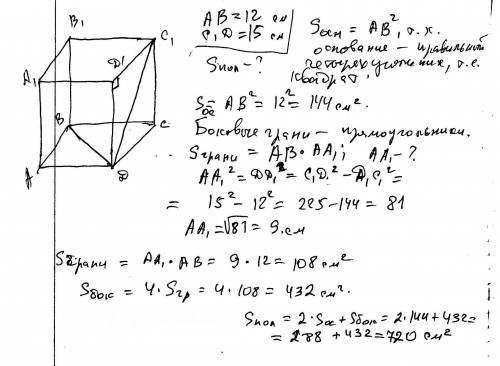 B₁
C₁
A₁
D¹
B
C
A
D
AB = 12 см
C₁D = 15 см
Sпол - ?
Sосн = AB², т.к.
основание - правильный
четырехугольник, т.е.
квадрат.
Sос = AB² = 12² = 144 см².
Боковые грани - прямоугольники.
Sграни = AB · AA₁; AA₁ - ?
AA₁² = DD₁² = C₁D² - D₁C₁² =
= 15² - 12² = 225 - 144 = 81
AA₁ = √81 = 9 см
Sб грани = AA₁ · AB = 9 · 12 = 108 см²
Sбок = 4 · Sгр = 4 · 108 = 432 см².
Sпол = 2 · Sос + Sбок = 2 · 144 + 432 =
= 288 + 432 = 720 см²